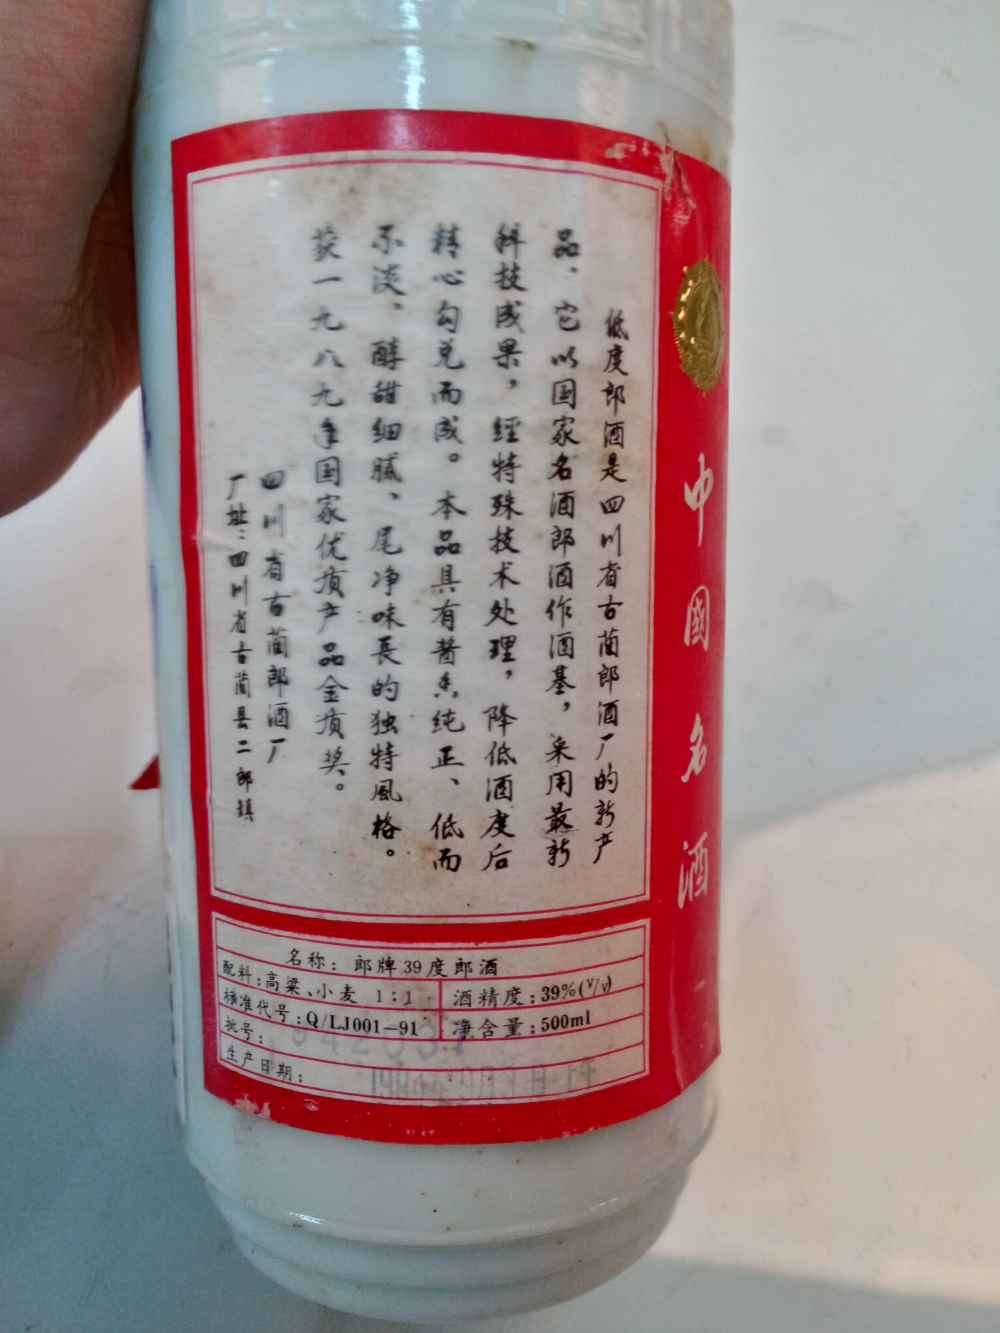 中國名酒
低度郎酒是四川省古蔺郎酒厂的新产
品、它以国家名酒郎酒作酒基，采用最新
科技成果，经特殊技术处理，降低酒度后
精心勾兑而成。本品具有酱香纯正、低而
不淡、醇甜细腻、尾净味長的独特風格。
荻一九八九年国家优质产品金质奖。
四川省古蔺郎酒厂
厂址：四川省古蔺县二郎镇
名称：郎牌39度郎酒
配料：高粱、小麦 1：1
酒精度：39%(V/V)
标准代号：Q/LJ001-91
净含量：500ml
批号：
生产日期：